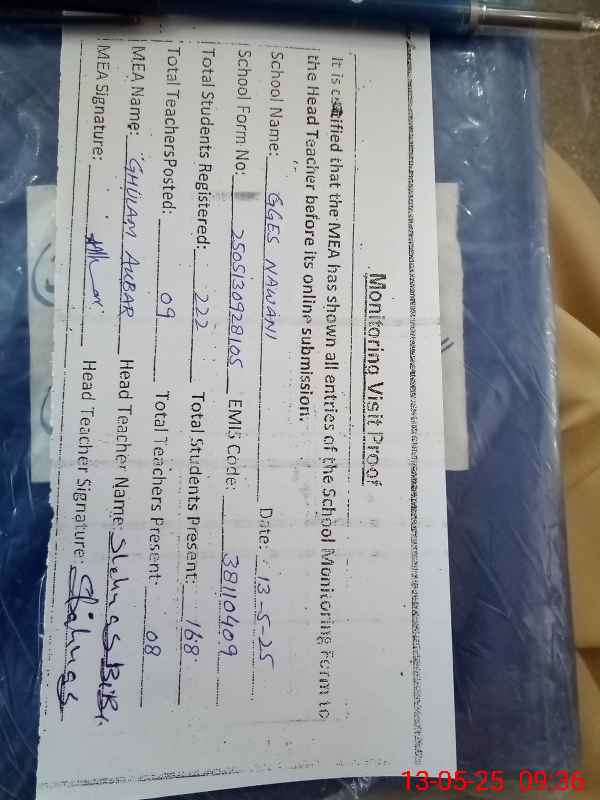 Monitoring Visit Proof
It is certified that the MEA has shown all entries of the School Monitoring Form to
the Head Teacher before its online submission.
School Name: GGES NAWANI Date: 13-5-25
School Form No: 2505130928105 EMIS Code: 38110409
Total Students Registered: 222 Total Students Present: 168
Total TeachersPosted: 09 Total Teachers Present: 08
MEA Name: GHULAM AKBAR Head Teacher Name: Shehnas BiBi
MEA Signature: Head Teacher Signature: Shehnas
13-05-25 09:36